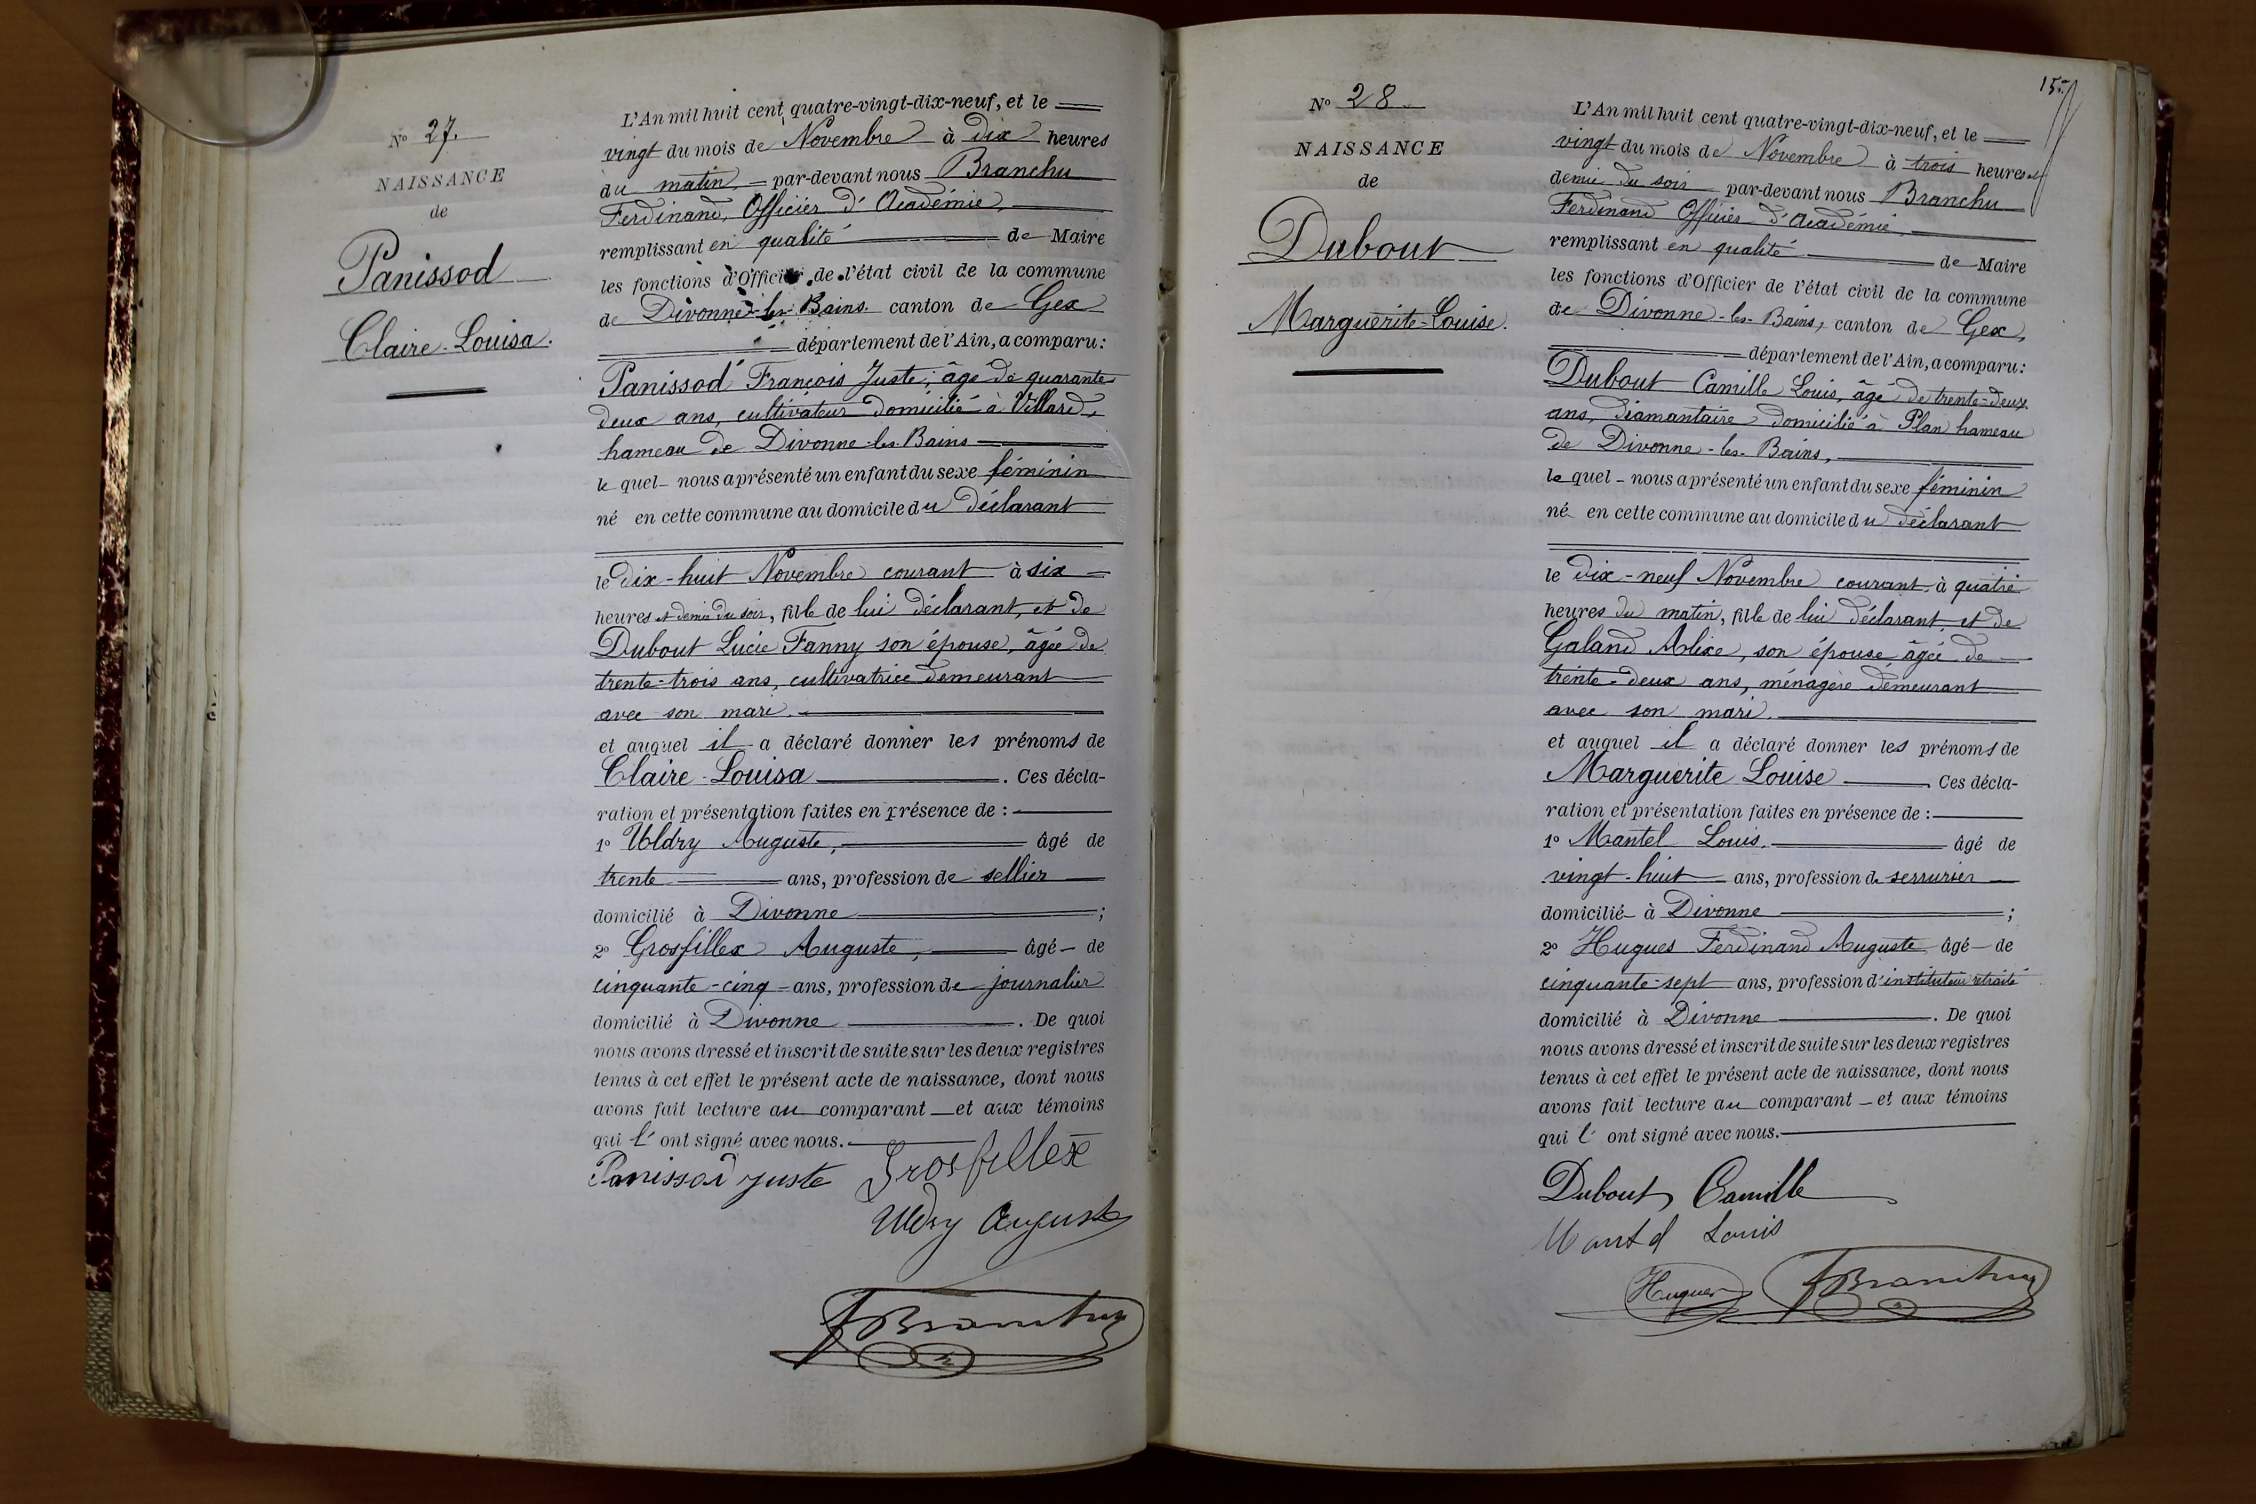 N° 27.
NAISSANCE
de
Panissod
Claire-Louisa.
L'An mil huit cent quatre-vingt-dix-neuf, et le
vingt du mois de Novembre à dix heures
du matin par-devant nous Branchu
Ferdinand, Officier d'Académie,
remplissant en qualité de Maire
les fonctions d'Officier de l'état civil de la commune
de Divonne-les-Bains canton de Gex
département de l'Ain, a comparu:
Panissod François Juste, âgé de quarante
deux ans, cultivateur domicilié à Villard,
hameau de Divonne-les-Bains
le quel nous a présenté un enfant du sexe féminin
né en cette commune au domicile du déclarant
le dix-huit Novembre courant à six
heures et demie du soir, fille de lui déclarant, et de
Dubout Lucie Fanny son épouse, âgée de
trente-trois ans, cultivatrice demeurant
avec son mari.
et auquel il a déclaré donner les prénoms de
Claire-Louisa. Ces décla-
ration et présentation faites en présence de :
1° Uldry Auguste, âgé de
trente ans, profession de sellier
domicilié à Divonne ;
2° Grosfillex Auguste, âgé de
cinquante-cinq ans, profession de journalier
domicilié à Divonne. De quoi
nous avons dressé et inscrit de suite sur les deux registres
tenus à cet effet le présent acte de naissance, dont nous
avons fait lecture au comparant et aux témoins
qui l'ont signé avec nous.
Panissod Juste Grosfillex
Uldry Auguste
F Branchu
15
N° 28
NAISSANCE
de
Dubout
Marguerite-Louise.
L'An mil huit cent quatre-vingt-dix-neuf, et le
vingt du mois de Novembre à trois heures et
demie du soir par-devant nous Branchu
Ferdinand Officier d'Académie,
remplissant en qualité de Maire
les fonctions d'Officier de l'état civil de la commune
de Divonne-les-Bains, canton de Gex,
département de l'Ain, a comparu:
Dubout Camille Louis, âgé de trente-deux
ans, diamantaire domicilié à Plan hameau
de Divonne-les-Bains,
le quel nous a présenté un enfant du sexe féminin
né en cette commune au domicile du déclarant
le dix-neuf Novembre courant à quatre
heures du matin, fille de lui déclarant et de
Galand Alixe, son épouse âgée de
trente-deux ans, ménagère demeurant
avec son mari.
et auquel il a déclaré donner les prénoms de
Marguerite Louise. Ces décla-
ration et présentation faites en présence de :
1° Mantel Louis. âgé de
vingt-huit ans, profession de serrurier
domicilié à Divonne ;
2° Hugues Ferdinand Auguste âgé de
cinquante-sept ans, profession d'instituteur retraité
domicilié à Divonne. De quoi
nous avons dressé et inscrit de suite sur les deux registres
tenus à cet effet le présent acte de naissance, dont nous
avons fait lecture au comparant et aux témoins
qui l'ont signé avec nous.
Dubout Camille
Mantel Louis
Hugues F Branchu